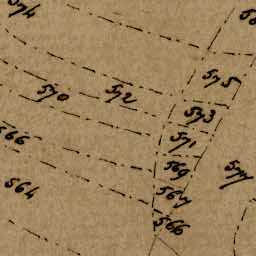 574
575
570
572
573
571
566
569
577
564
567
566